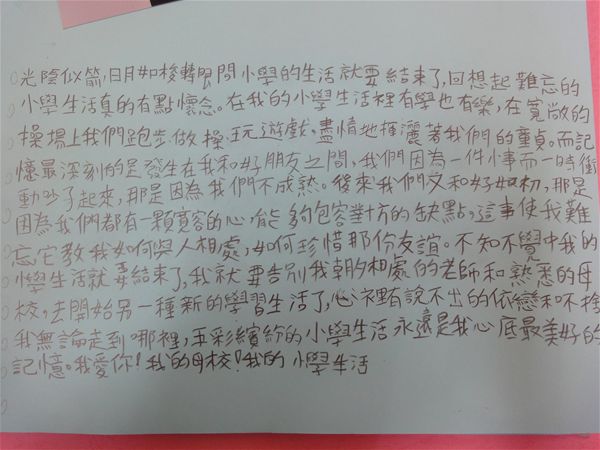 光陰似箭，日月如梭轉眼間小學的生活就要結束了，回想起難忘的
小學生活真的有點懷念。在我的小學生活裡有學也有樂，在寬敞的
操場上我們跑步、做操、玩遊戲，盡情地揮灑著我們的童貞。而記
憶最深刻的是發生在我和好朋友之間，我們因為一件小事而一時衝
動吵了起來，那是因為我們不成熟。後來我們又和好如初，那是
因為我們都有一顆寬容的心，能夠包容對方的缺點。這事使我難
忘，它教我如何與人相處，如何珍惜那份友誼。不知不覺中我的
小學生活就要結束了，我就要告別我朝夕相處的老師和熟悉的母
校，去開始另一種新的學習生活了，心裡有說不出的依戀和不捨
我無論走到哪裡，五彩繽紛的小學生活永遠是我心底最美好的
記憶。我愛你！我的母校！我的小學生活